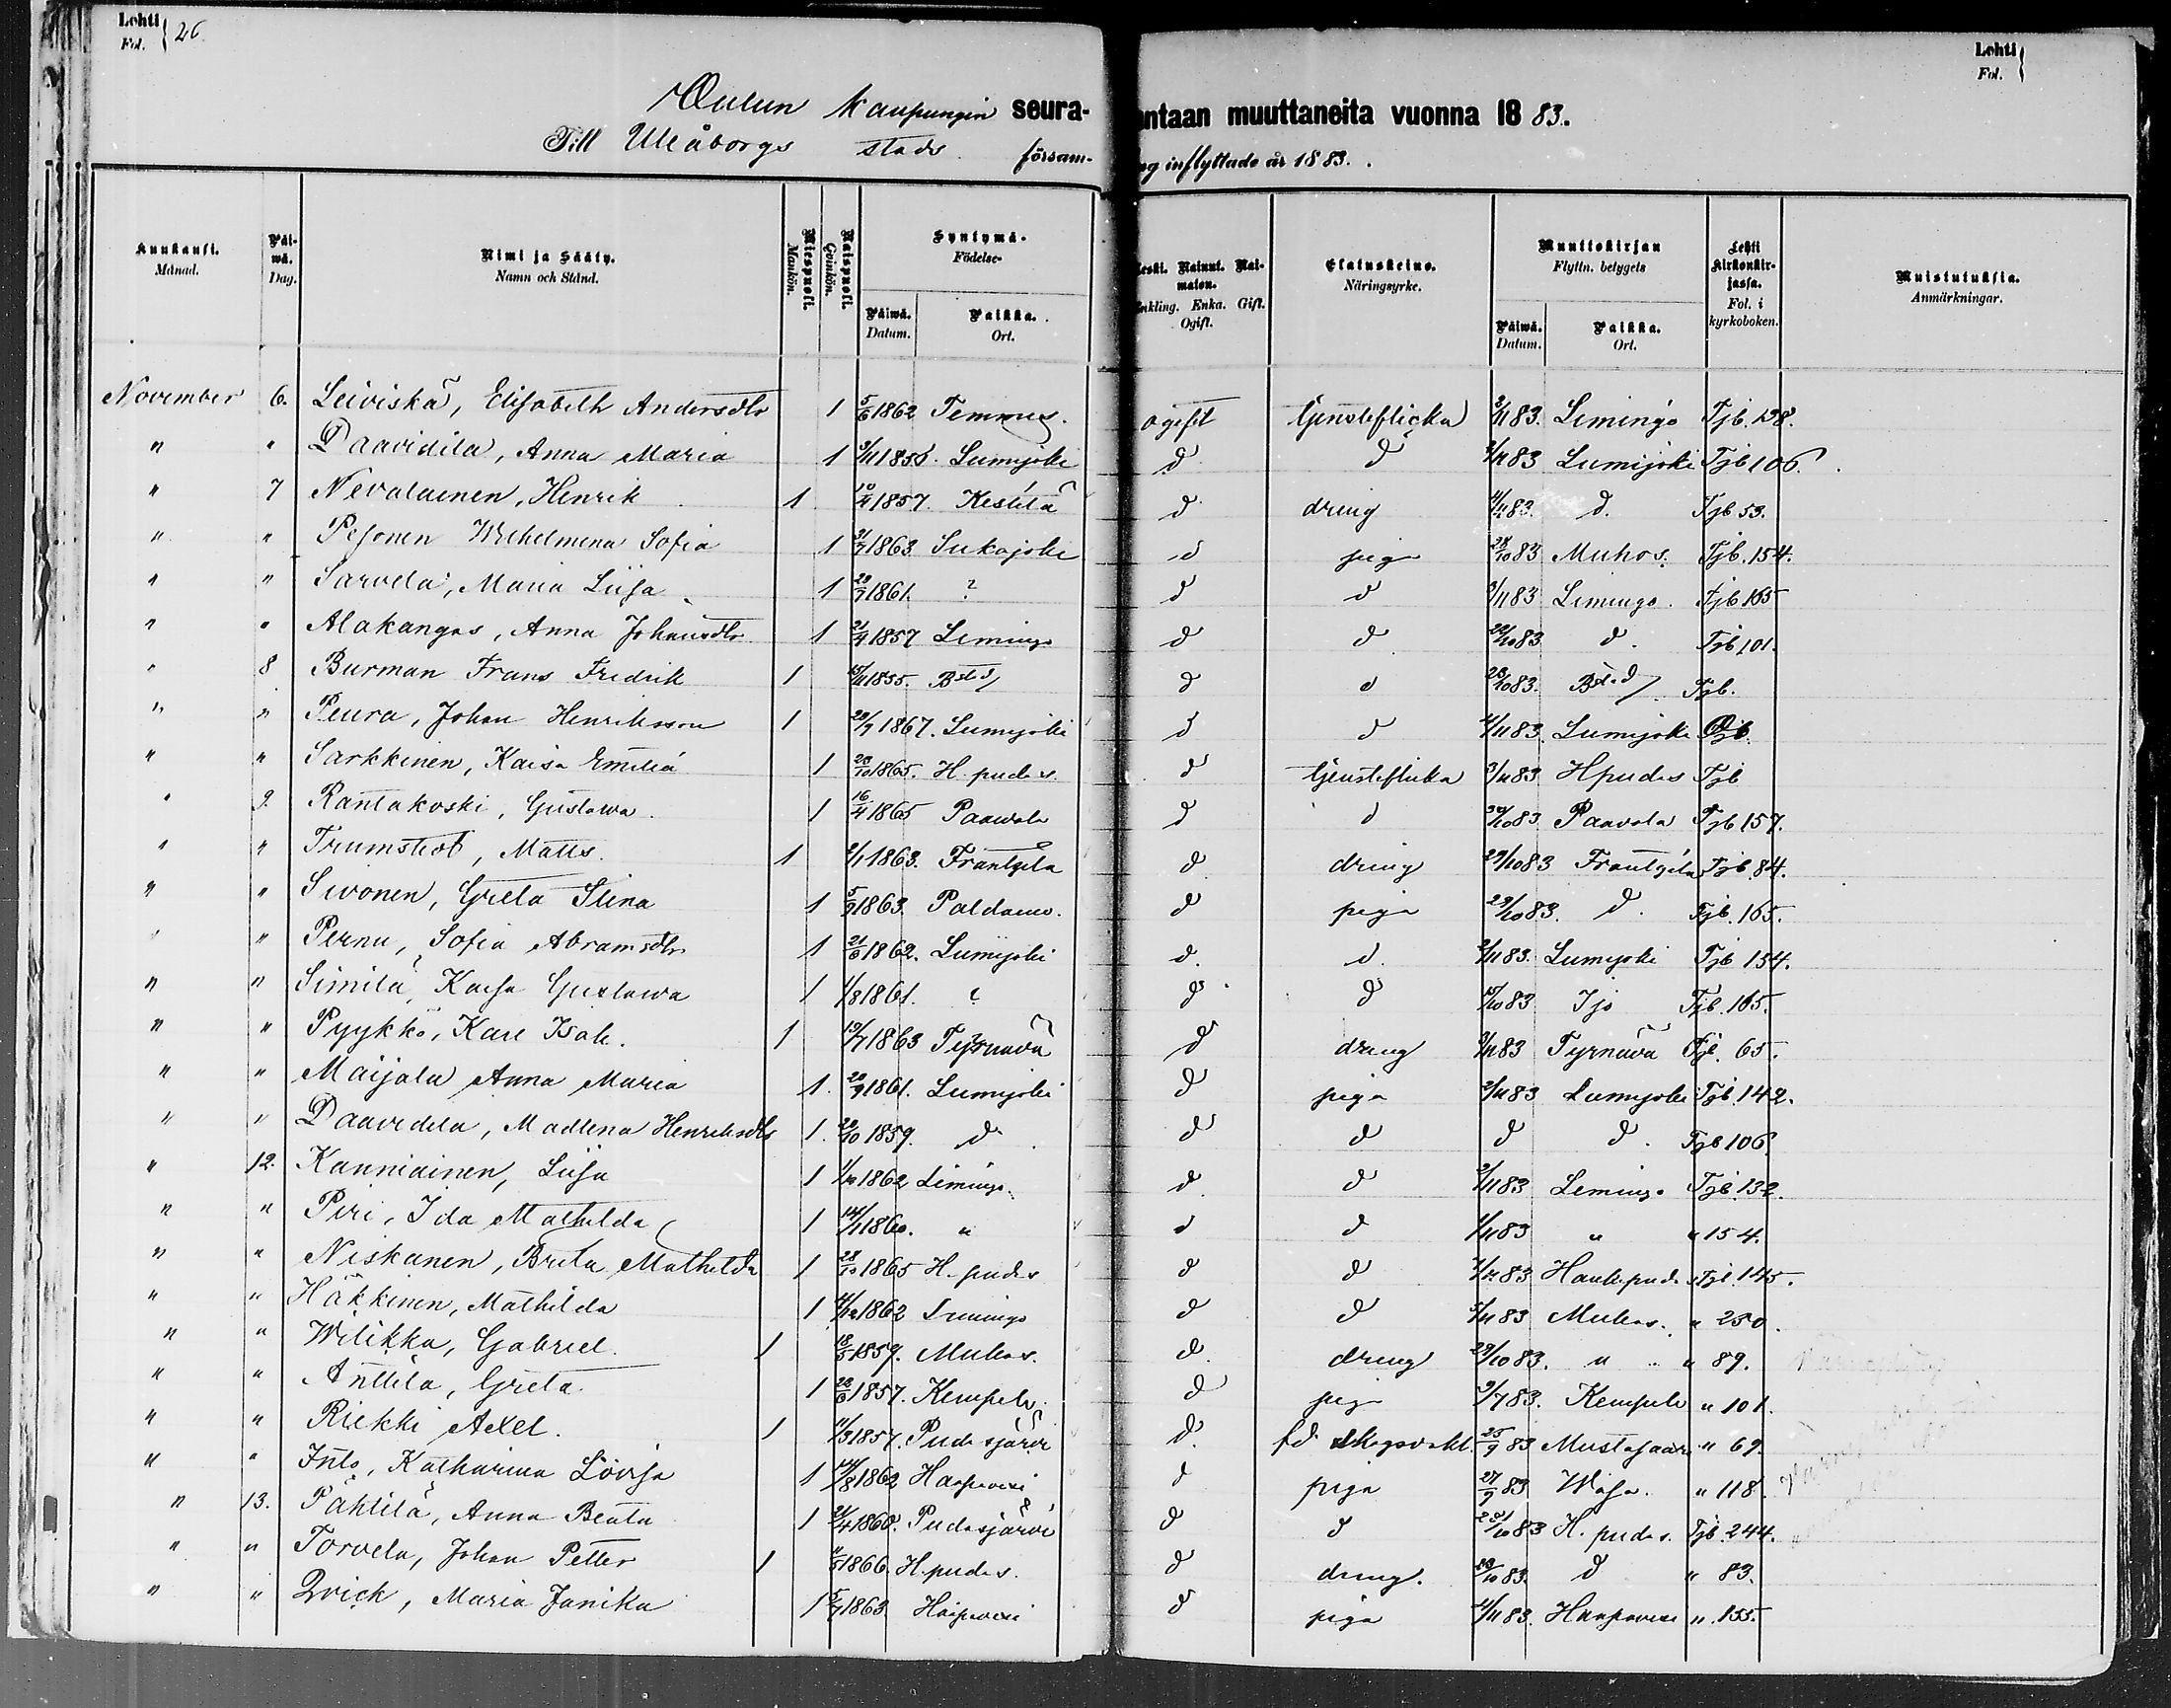 Lehti Fol. { 26.
Lehti Fol. {
Oulun kaupungin seura- ntaan muuttaneita vuonna 1883.
Till Uleåborgs stads försam- ng inflyttade år 1883.
Kuukausi. Månad. Päiwä. Dag. Nimi ja Sääty. Namn och Stånd. Miespuoli. Mankön. Waispuoli. Qvinkön. Syntymä- Födelse- Päiwä. Datum. Paikka. Ort. Leski. Nainut. Naimaton. Enkling. Enka. Gift. Ogift. Elatuskeino. Näringsyrke. Muuttokirjan Flyttn. betygets Päiwä. Datum. Paikka. Ort. Lehti Kirkonkirjassa. Fol. i kyrkoboken. Muistutuksia. Anmärkningar.
November 6. Leiviskä, Elisabeth Andersdtr 1 5/6 1862 Temmes. ogift tjensteflicka 3/11 83. Limingo Tjb. 138.
" " Daavidila, Anna Maria 1 3/11 1855. Lumijoki d d 2/11 83 Lumijoki Tjb 106.
" 7 Nevalainen, Henrik 1 10/4 1857. Kestilä d dräng 4/11 83. d. Tjb 53.
" " Pesonen Wilhelmina Sofia 1 31/7 1863 Siikajoki d piga 28/10 83 Muhos. Tjb. 154.
" " Sarvela, Maria Liisa 1 29/7 1861. ? d d 3/11 83 Limingo. Tjb 165
" " Alakangas, Anna Johansdtr 1 21/4 1857 Limingo d d 22/10 83 d. Tjb 101.
" 8 Burman Frans Fredrik 1 15/11 1855. Bst d d 28/10 83. Bst Tjb.
" " Peura, Johan Henriksson 1 29/9 1867. Lumijoki d d 4/11 83. Lumijoki Tjb.
" " Sarkkinen, Kaisa Emilia 1 28/10 1865. H. pudas d tjensteflicka 3/11 83 Hpudas Tjb
" 9. Rantakoski, Gustawa. 1 16/4 1865 Paavola d d 30/10 83. Paavola Tjb 157.
" " Trumstedt, Matts. 1 2/1 1863. Frantsila d dräng 29/10 83 Frantsila Tjb. 84.
" " Sivonen, Greta Stina 1 5/9 1863. Paldamo. d piga 29/10 83. d. Tjb. 165.
" " Pernu, Sofia Abramsdtr 1 21/6 1862. Lumijoki d. d. 2/11 83. Lumijoki Tjb 154.
" " Similä, Kaisa Gustawa 1 1/8 1861. ? d d 15/10 83 Ijo Tjb. 165.
" " Pyykkö, Karl Isak. 1 19/7 1863 Tyrnävä d dräng 3/11 83 Tyrnävä Tjb. 65.
" " Maijala Anna Maria 1. 20/9 1861. Lumijoki d piga 2/11 83 Lumijoki Tjb. 142.
" " Daavidila, Madlena Henriksdtr 1. 20/10 1859. d d d d d. Tjb 106.
" 12. Kanniainen, Liisa 1 1/10 1862 Limingo. d d 2/11 83 Limingo Tjb. 132.
" " Piri, Ida Mathilda 1 14/1 1860. " d d 1/11 83 " " 154.
" " Niskanen, Brita Mathilda 1 28/10 1865 H. pudas d d 7/11 83 Haukipudas Tjb. 145.
" " Häkkinen, Mathilda 1 4/12 1862 Limingo d d 5/11 83 Muhos. " 250.
" " Wilikka, Gabriel. 1 18/5 1859. Muhos. d. dräng 29/10 83. " " 89.
" " Anttila, Greta. 1 22/6 1857. Kempele. d piga 9/7 83. Kempele " 101.
" " Riekki Axel. 1 11/3 1857. Pudasjärvi d. fd skogsvakt. 25/9 83 Mustasaari " 69.
" " Into, Katharina Lovisa 1 14/8 1862 Haapavesi d piga 27/9 83 Wasa. " 118.
" 13. Pähtilä, Anna Beata 1 21/4 1860. Pudasjärvi d d 28/10 83 H. pudas. Tjb. 244.
" " Torvela, Johan Petter 1 1866. H. pudas. d dräng. 30/10 83. d " 83.
" " Qvick, Maria Janika 1 5/7 1863. Haapavesi d piga 4/11 83. Haapavesi " 155.